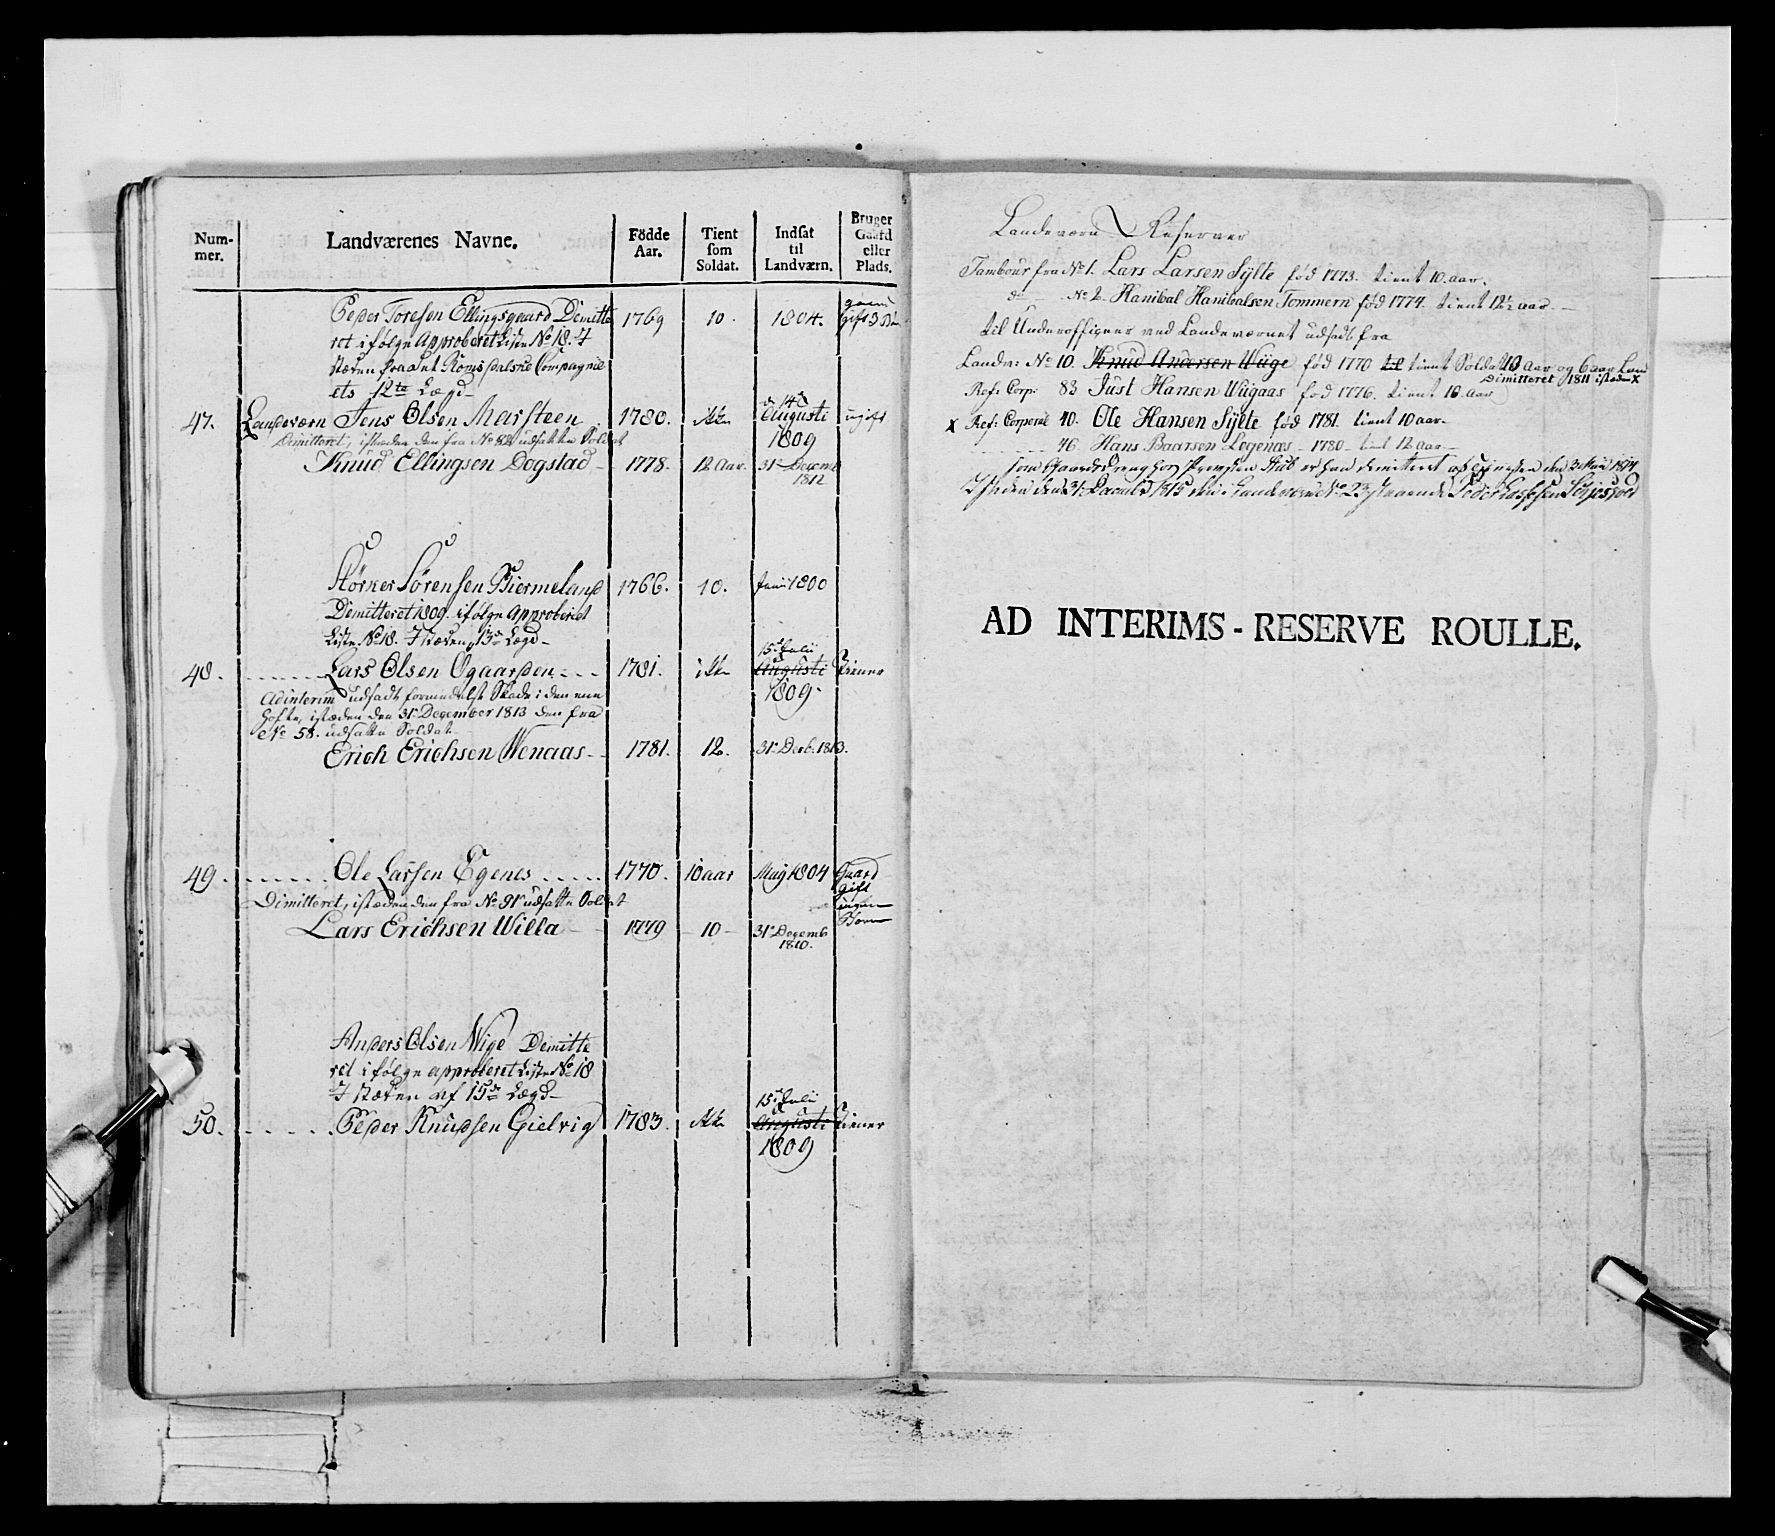 Num-
mer.
Landværenes Navne.
Födde
Aar.
Tient
som
Soldat.
Indsat
til
Landværn.
Bruger
Gaard
eller
Plads.
Peder Toresen Ellingsgaard Dimitte 1769 10. 1804. gift 3
ret i følge Approberet Liste No 18. I
stæden fra det Romsdalske Compagnie
ets 12te Lægd
47. Landeværn Jens Olsen Marsteen 1780. ikke d. 14d Augusti 1809 ugift
Dimitteret, istæden den fra No 82 udsatte Soldat
Knud Ellingsen Dogstad 1778. 12 Aar. 31 Decemb 1812
Størker Sørensen Biermeland 1766. 10. Juni 1800
Dimitteret 1809. i følge Approberet
Liste No 18. I stæden 13de Lægd
48. Lars Olsen Ogaarden 1781. ikke 15d Julii Augusti 1809. Tiener
Ad interim udsadt formedelst Skade i den ene
Hofte, istæden den 31 December 1813 den fra
No 58. udsatte Soldat
Erich Erichsen Wenaas 1781. 12. 31 Decb. 1813.
49. Ole Larsen Egenes 1770. 10 aar May 1804 Gaard
gift
ingen
Born
Dimitteret, istæden den fra No 91 udsatte Soldat
Lars Erichsen Willa 1779 10 31 Decemb 1810.
Anders Olsen Wige Dimitte
ret i følge approberet Liste No 18
I stæden af 15de Lægd
50. Peder Knudsen Gielvig 1783. ikke 15d Julii Augusti 1809 Tiener
Landeværn Reserver
Tambour fra No 1. Lars Larsen Sylte fød 1773. tient 10. aar.
do No 2. Hanibal Hanibalsen Tommern fød 1774. tient 12½ aar
til Underofficerer ved Landeværnet udsadt fra
Lande: No 10. Knud Andersen Wüge fød 1770 tient Soldat 10 Aar og 6 aar Lan
Dimitteret 1811 isteden X
Ref: Corp: 83 Just Hansen Wügaas fød 1776. tient 10 aar
X Ref: Corporal 40. Ole Hansen Sylte fød 1781. tient 10 aar.
46. Hans Baarsen Legenæs 1780 tient 12 aar
som Gaards er han demitteret af Tienesten den 3 1814
Isteden den 31 Decemb 1815 den i Landeværn No 23 staaende Peder
AD INTERIMS-RESERVE ROULLE.